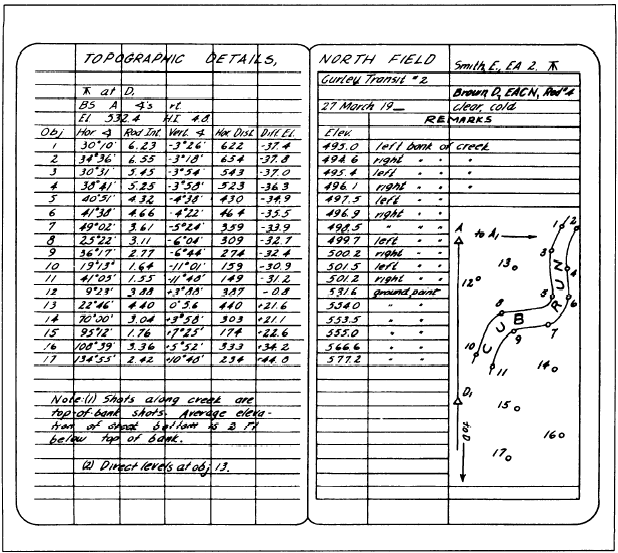 TOPOGRAPHIC DETAILS,
⊼ at D.
BS A ∡'s rt.
El 532.4 H.I. 4.8
Obj Hor ∡ Rod Int. Vert. ∡ Hor Dist Diff. El.
1 30°10' 6.23 -3°26' 622 -37.4
2 34°36' 6.55 -3°18' 654 -37.8
3 30°31' 5.45 -3°54' 543 -37.0
4 38°41' 5.25 -3°58' 523 -36.3
5 40°51' 4.32 -4°38' 430 -34.9
6 41°38' 4.66 -4°22' 464 -35.5
7 49°02' 3.61 -5°24' 359 -33.9
8 25°22' 3.11 -6°04' 309 -32.7
9 36°17' 2.77 -6°44' 274 -32.4
10 19°13' 1.64 -11°01' 159 -30.9
11 41°05' 1.55 -11°48' 149 -31.2
12 9°23' 3.88 +3°88' 387 -0.8
13 22°46' 4.40 0°5.6 440 +21.6
14 70°00' 3.04 +3°58' 303 +21.1
15 95°12' 1.76 +7°25' 174 +22.6
16 108°39' 3.36 +5°52' 333 +34.2
17 134°55' 2.42 +10°48' 234 +44.8
Note:(1) Shots along creek are
top-of-bank shots. Average eleva-
tion of creek bottom is 3 Ft
below top of bank.
(2) Direct levels at obj 13.
NORTH FIELD
Smith E., EA 2. ⊼
Gurley Transit #2
Brown D, EACN, Rod #4
27 March 19_ clear, cold
REMARKS
Elev.
495.0 left bank of creek
494.6 right " " "
495.4 left " " "
496.1 right " " "
497.5 left " "
496.9 right " "
498.5 " " "
499.7 left " "
500.2 right " "
501.5 left " "
501.2 right " "
531.6 ground point
554.0 " "
553.5 " "
555.0 " "
566.6 " "
577.2 " "
A to A1
1 2
3
13
4
12
RUN
5 6
8
CUB
7
9
10
11
14
D1
15
to D
16
17